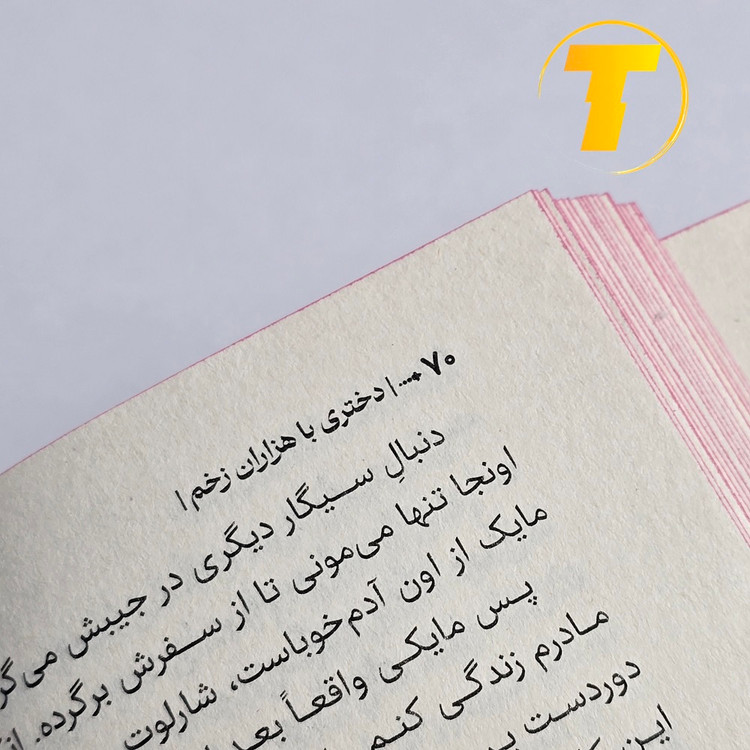 T
۷۰ | دختری با هزاران زخم |
دنبالِ سیگار دیگری در جیبش
اونجا تنها می‌مونی تا از سفرش برگرده.
مایک از اون آدم‌خوباست، شارلوت
پس مایکی واقعاً
مادرم زندگی کنم
دوردست
این